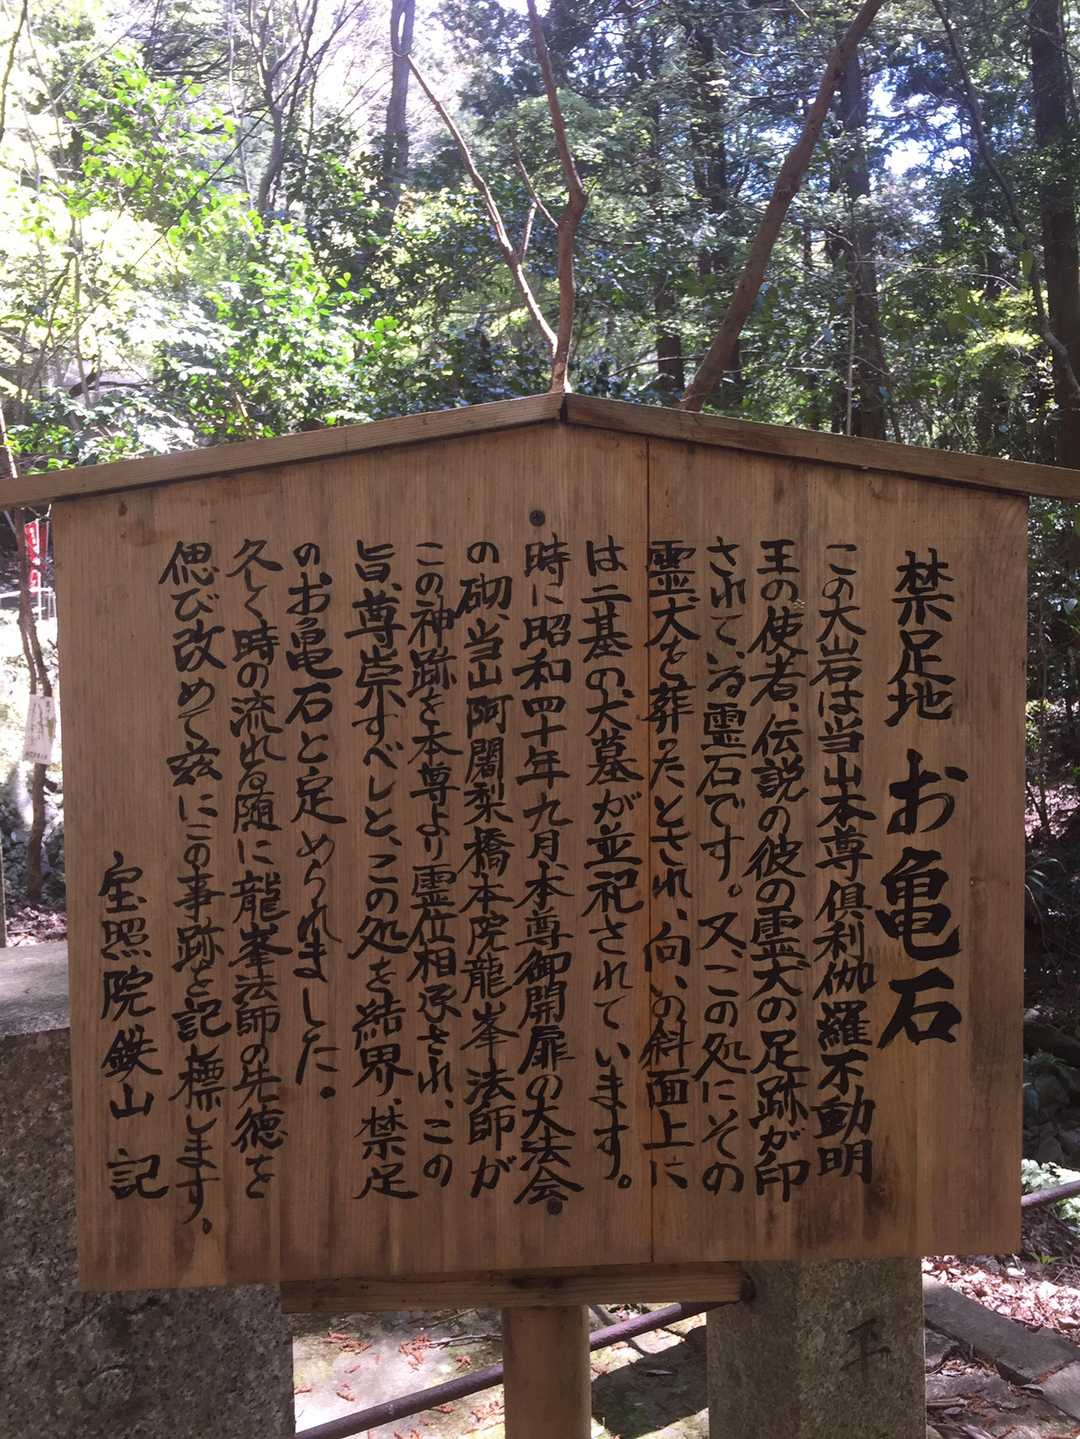 禁足地 お亀石
この大岩は当山本尊俱利伽羅不動明
王の使者、伝説の彼の霊犬の足跡が印
されている霊石です。又、この処にその
霊犬を葬ったとされ、向いの斜面上に
は二基の犬墓が並祀されています。
時に昭和四十年九月、本尊御開扉の大法会
の砌、当山阿闍梨橋本院龍峯法師が
この神跡を本尊より霊位相承され、この
旨、尊崇すべしと、この処を結界、禁足
のお亀石と定められました。
久しく時の流れる随に龍峯法師の先徳を
偲び改めて茲にこの事跡を記標します。
宝照院鉄山 記